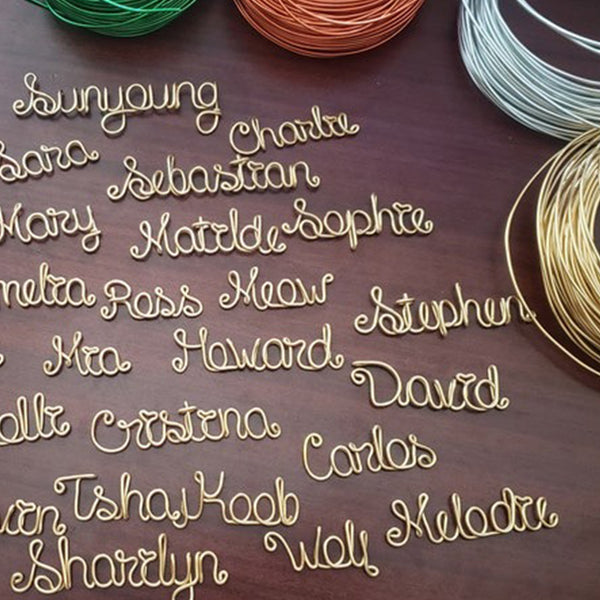 Sunyoung
Charlie
Sara Sebastian
Mary Matilde Sophie
melia Ross Meow Stephen
Mia Howard David
olli Cristina Carlos
Tsha Koob Melodie
Sharilyn Wolf